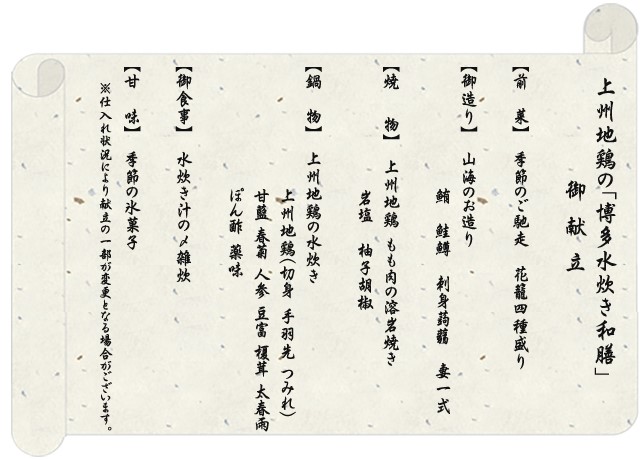 上州地鶏の「博多水炊き和膳」
御献立
【前菜】 季節のご馳走 花籠四種盛り
【御造り】 山海のお造り
鮪 鮭鱒 刺身蒟蒻 妻一式
【焼物】 上州地鶏 もも肉の溶岩焼き
岩塩 柚子胡椒
【鍋物】 上州地鶏の水炊き
上州地鶏(切身 手羽先 つみれ)
甘藍 春菊 人参 豆富 榎茸 太春雨
ぽん酢 薬味
【御食事】 水炊き汁の〆雑炊
【甘味】 季節の氷菓子
※仕入れ状況により献立の一部が変更となる場合がございます。